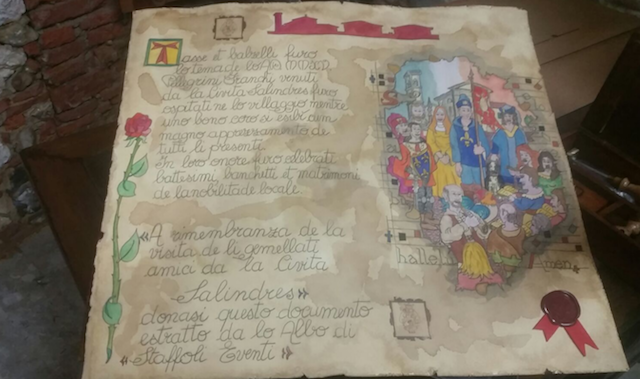 Tasse et balzelli furo
lo tema de lo
Pellegrini Franchi venuti
da la Civita Salindres furo
ospitati ne lo villaggio mentre
uno bono coro si esibì cum
magno apprezzamento de
tutti li presenti.
In loro onore furo celebrati
battesimi, banchetti et matrimoni
de la nobilitade locale.
«A rimembranza de la
visita de li gemellati
amici da la Civita
Salindres»
donasi questo documento
estratto da lo Albo di
«Staffoli Eventi»